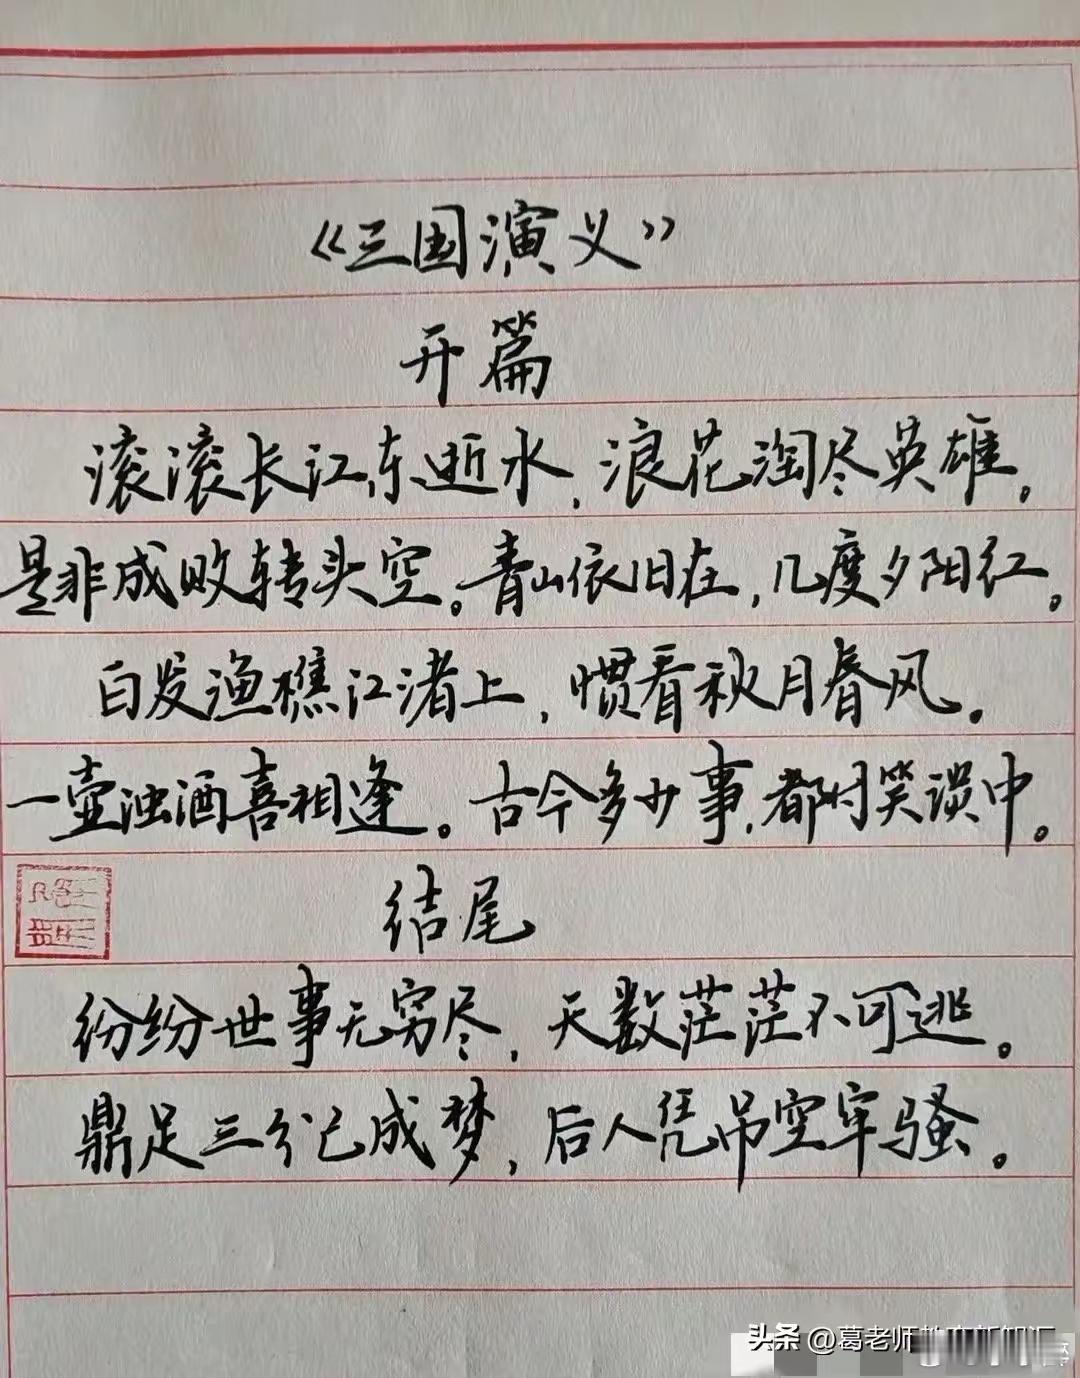 《三国演义》
开篇
滚滚长江东逝水,浪花淘尽英雄,
是非成败转头空。青山依旧在,几度夕阳红。
白发渔樵江渚上,惯看秋月春风。
一壶浊酒喜相逢。古今多少事,都付笑谈中。
结尾
纷纷世事无穷尽,天数茫茫不可逃。
鼎足三分已成梦,后人凭吊空牢骚。
头条 @葛老师